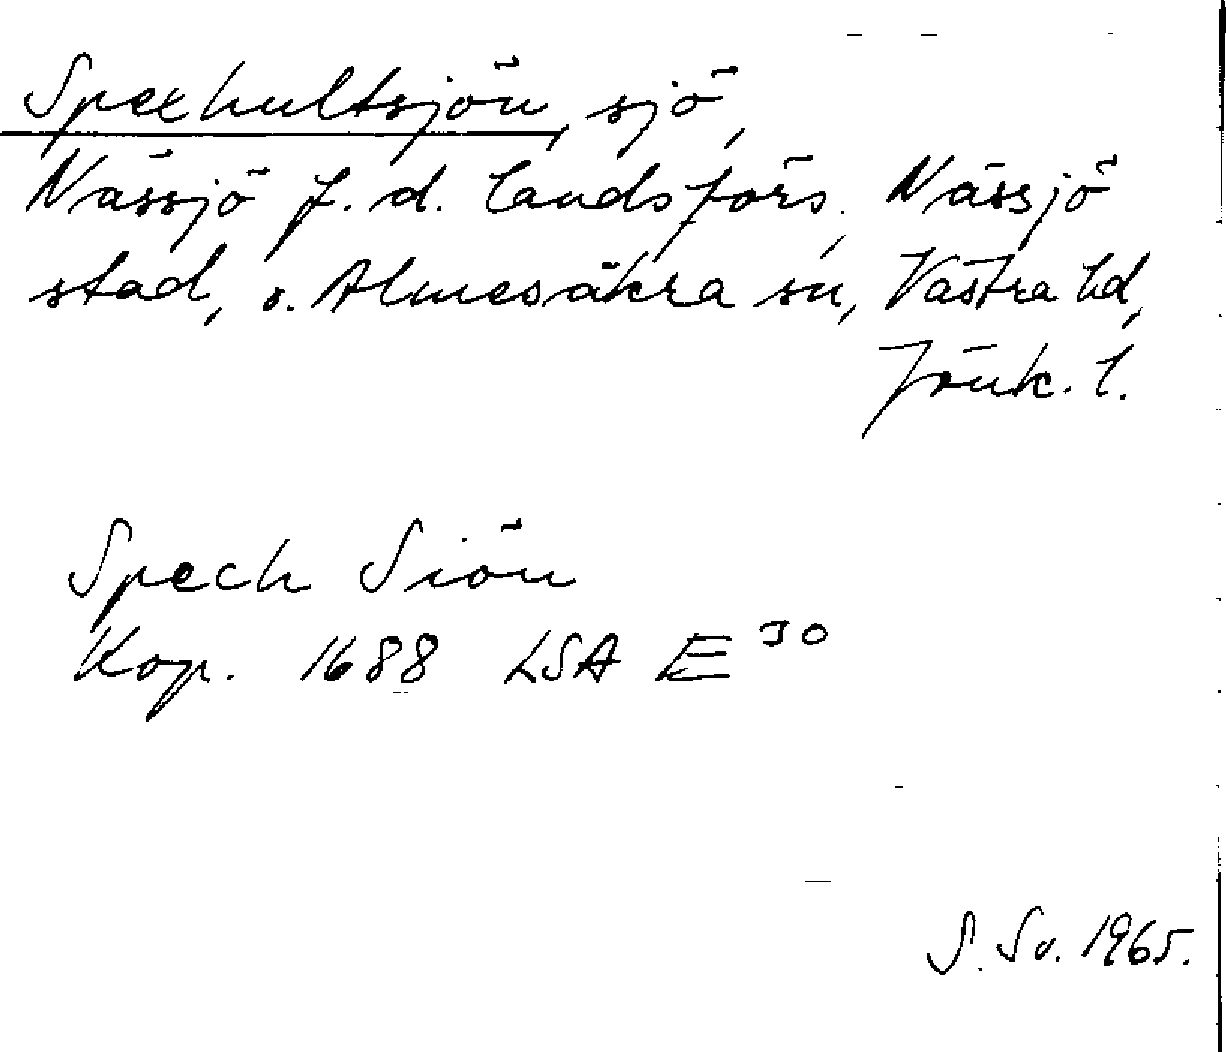 Spexhultsjön, sjö,
Nässjö f. d. landsförs., Nässjö
stad, o. Almesåkra sn, Västra hd,
Jönk. l.
Spech Siön
Kop. 1688 LSA E 30
S. Sv. 1965.